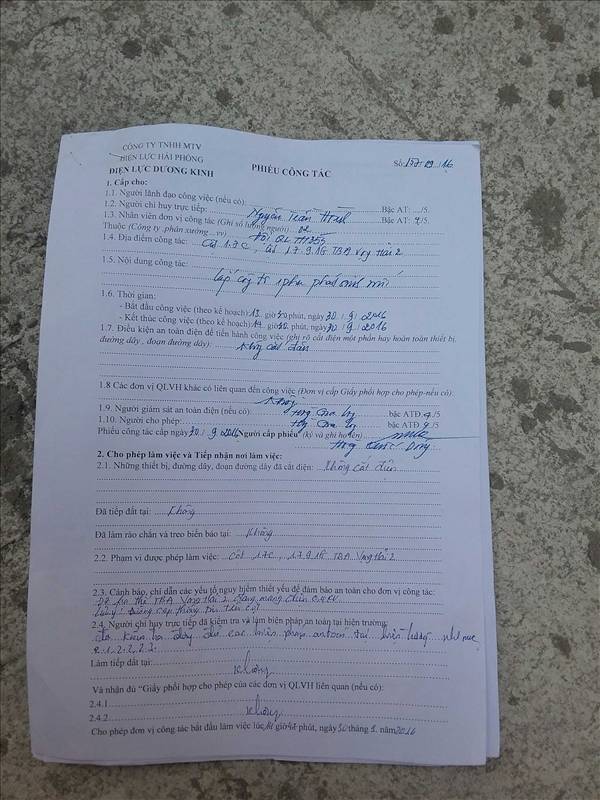 CÔNG TY TNHH MTV
ĐIỆN LỰC HẢI PHÒNG
ĐIỆN LỰC DƯƠNG KINH
PHIẾU CÔNG TÁC
Số: 137/ 09 /16
1. Cấp cho:
1.1. Người lãnh đạo công việc (nếu có): Bậc AT: .../5.
1.2. Người chỉ huy trực tiếp: Nguyễn Bậc AT: 4/5.
1.3. Nhân viên đơn vị công tác (Ghi số lượng người) 02
Thuộc (Công ty ,phân xưởng ...vv) Đội QL
1.4. Địa điểm công tác: Cột 17C, Cột 17.9.18 TBA Vọng Hải 2
1.5. Nội dung công tác:
Lắp công tơ 1 pha phát sinh mới
1.6. Thời gian:
- Bắt đầu công việc (theo kế hoạch) 13 giờ phút, ngày 30 / 9 /2016
- Kết thúc công việc (theo kế hoạch) giờ phút, ngày 30 / 9 /2016
1.7. Điều kiện an toàn điện để tiến hành công việc (ghi rõ cắt điện một phần hay hoàn toàn thiết bị,
đường dây , đoạn đường dây): Không cắt điện
1.8 Các đơn vị QLVH khác có liên quan đến công việc (Đơn vị cấp Giấy phối hợp cho phép-nếu có):
Không
1.9. Người giám sát an toàn điện (nếu có): bậc ATĐ 4/5
1.10. Người cho phép: bậc ATĐ 4/5
Phiếu công tác cấp ngày 30 / 9 /2016 Người cấp phiếu (ký và ghi họ tên)
2. Cho phép làm việc và Tiếp nhận nơi làm việc:
2.1. Những thiết bị, đường dây, đoạn đường dây đã cắt điện: Không cắt điện
Đã tiếp đất tại: Không
Đã làm rào chắn và treo biển báo tại: Không
2.2. Phạm vi được phép làm việc: Cột 17C, 17.9.18 TBA Vọng Hải 2
2.3. Cảnh báo, chỉ dẫn các yếu tố nguy hiểm thiết yếu để đảm báo an toàn cho đơn vị công tác:
TBA Vọng Hải 2 đang mang điện 0,4KV
Lưu ý: Đường cáp thông tin trên cột
2.4. Người chỉ huy trực tiếp đã kiểm tra và làm biện pháp an toàn tại hiện trường:
đã kiểm tra đầy đủ các biện pháp an toàn tại hiện trường như mục
2.1, 2.2, 2.3
Làm tiếp đất tại:
Không
Và nhận đủ "Giấy phối hợp cho phép của các đơn vị QLVH liên quan (nếu có):
2.4.1
2.4.2 Không
Cho phép đơn vị công tác bắt đầu làm việc lúc giờ phút, ngày 30 tháng 9. năm 2016